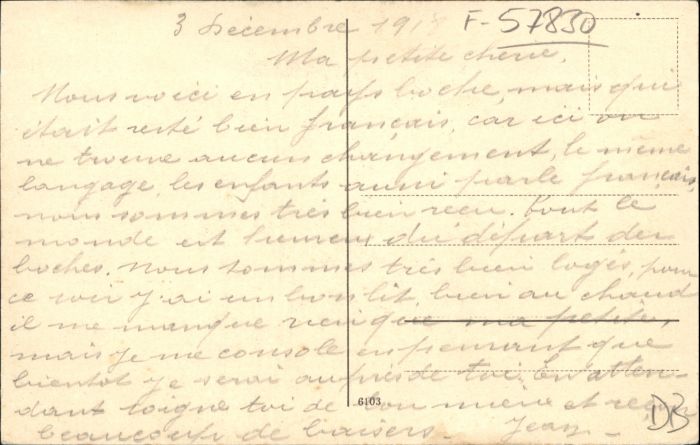 F-57830
3 Décembre 1918
Ma petite cherie,
Nous voici en pays boche, mais qui
était resté bien français, car ici on
ne trouve aucun changement, le même
langage, les enfants aussi parle français,
nous sommes très bien reçu. Tout le
monde est heureux du départ des
boches. Nous sommes très bien logés, pour
ce soir j'ai un bon lit, bien au chaud
il me manque rien que ma petite,
mais je me console en pensant que
bientot je serai auprès de toi. En atten-
dant soigne toi de ton mieux et
beaucoup de baisers. Jean
6103
DB